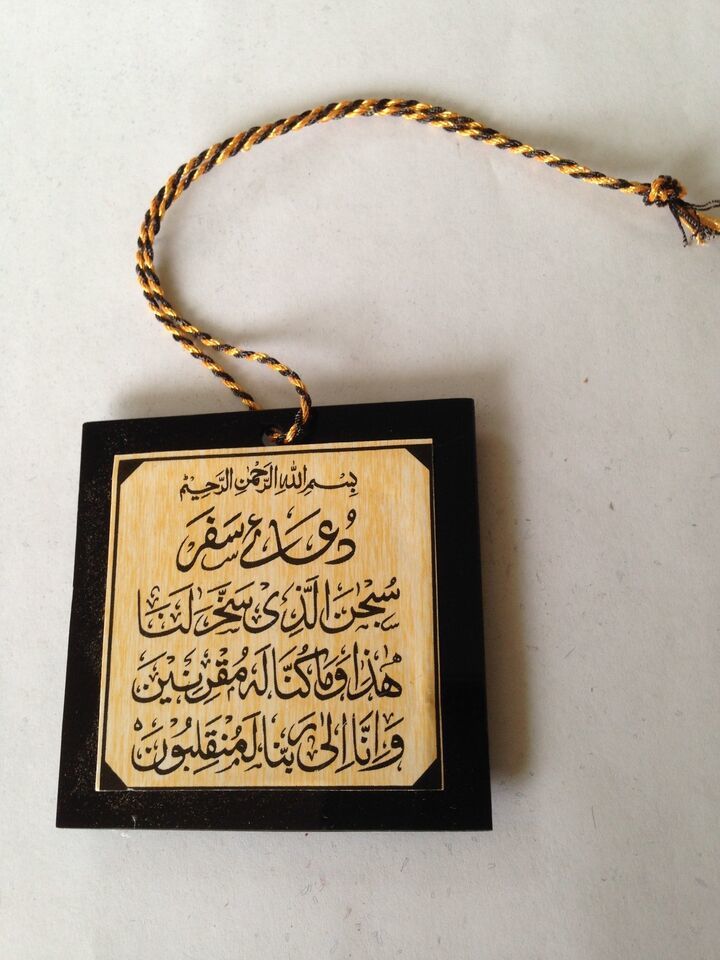 بِسْمِ اللهِ الرَّحْمٰنِ الرَّحِيْمِ
دُعَائے سَفَر
سُبْحٰنَ الَّذِیْ سَخَّرَ لَنَا
هٰذَا وَمَا كُنَّا لَهٗ مُقْرِنِيْنَ
وَاِنَّا اِلٰى رَبِّنَا لَمُنْقَلِبُوْنَ